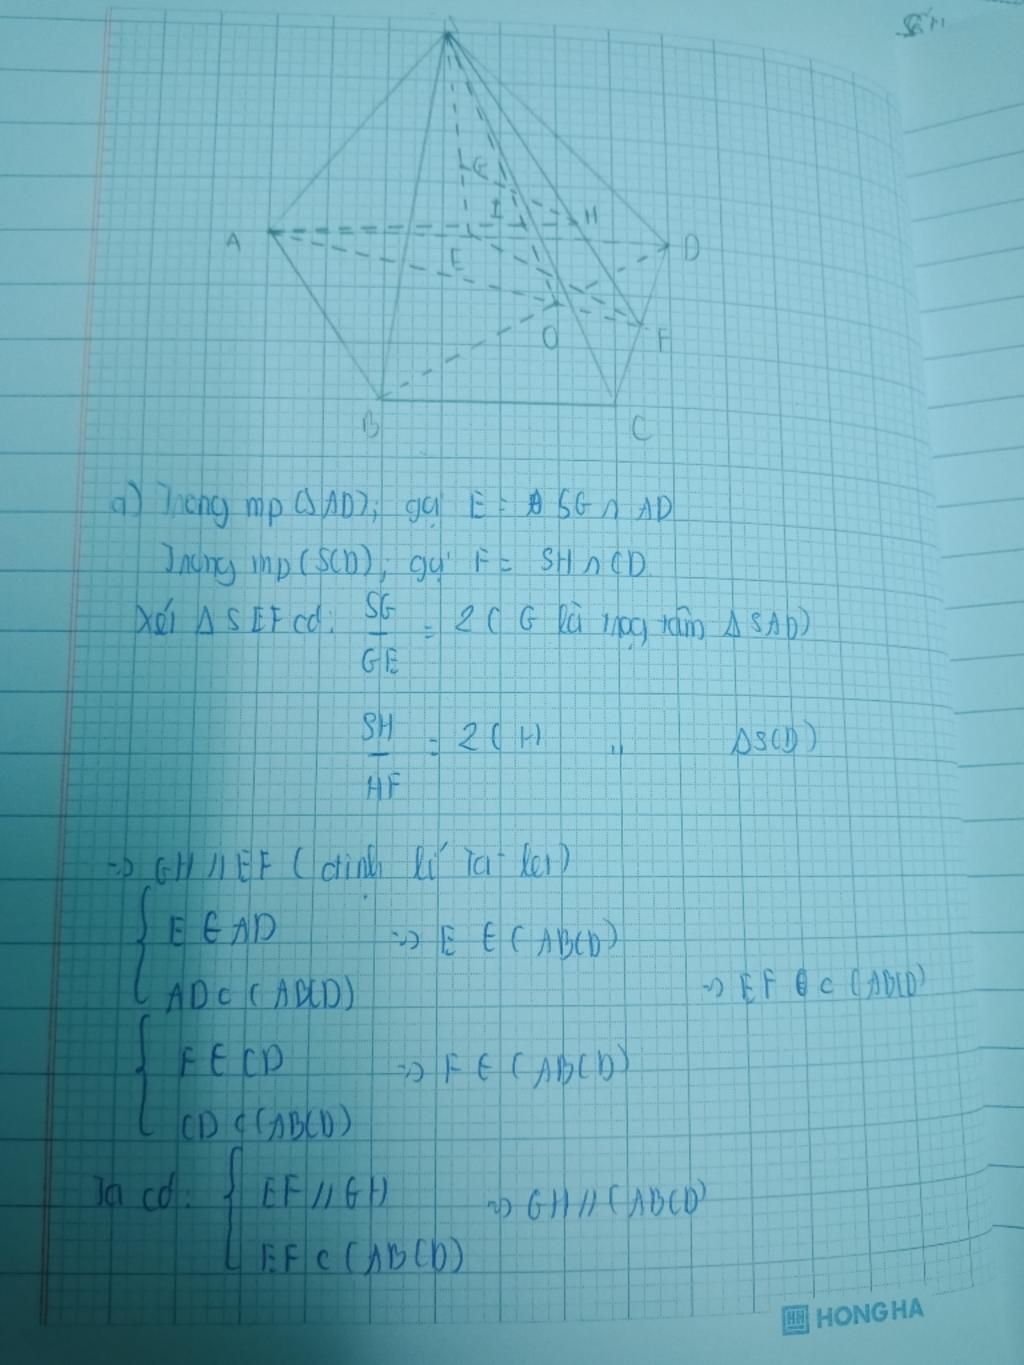 G
I
H
A
E
D
O
F
B
C
a) Trong mp (SAD), gọi E = SG ∩ AD
Trong mp (SCD), gọi F = SH ∩ CD
Xét Δ SEF có: SG/GE = 2 ( G là trọng tâm Δ SAD)
SH/HF = 2 ( H " ΔSCD)
=> GH // EF ( định lí Ta-let)
{ E ∈ AD
=> E ∈ ( ABCD)
AD ⊂ ( ABCD)
=> EF ⊂ (ABCD)
{ F ∈ CD
=> F ∈ ( ABCD)
CD ⊂ (ABCD)
Ta có: { EF // GH
=> GH // (ABCD)
EF ⊂ ( ABCD)
HH HONG HA